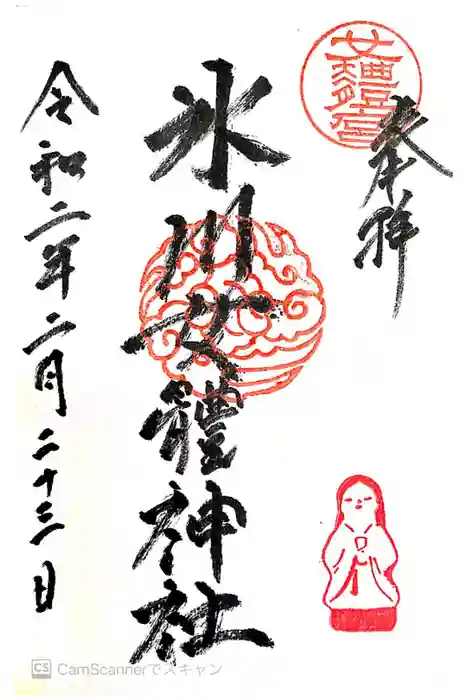 奉拜
女體宮
氷川女體神社
令和二年二月二十三日
CS CamScannerでスキャン